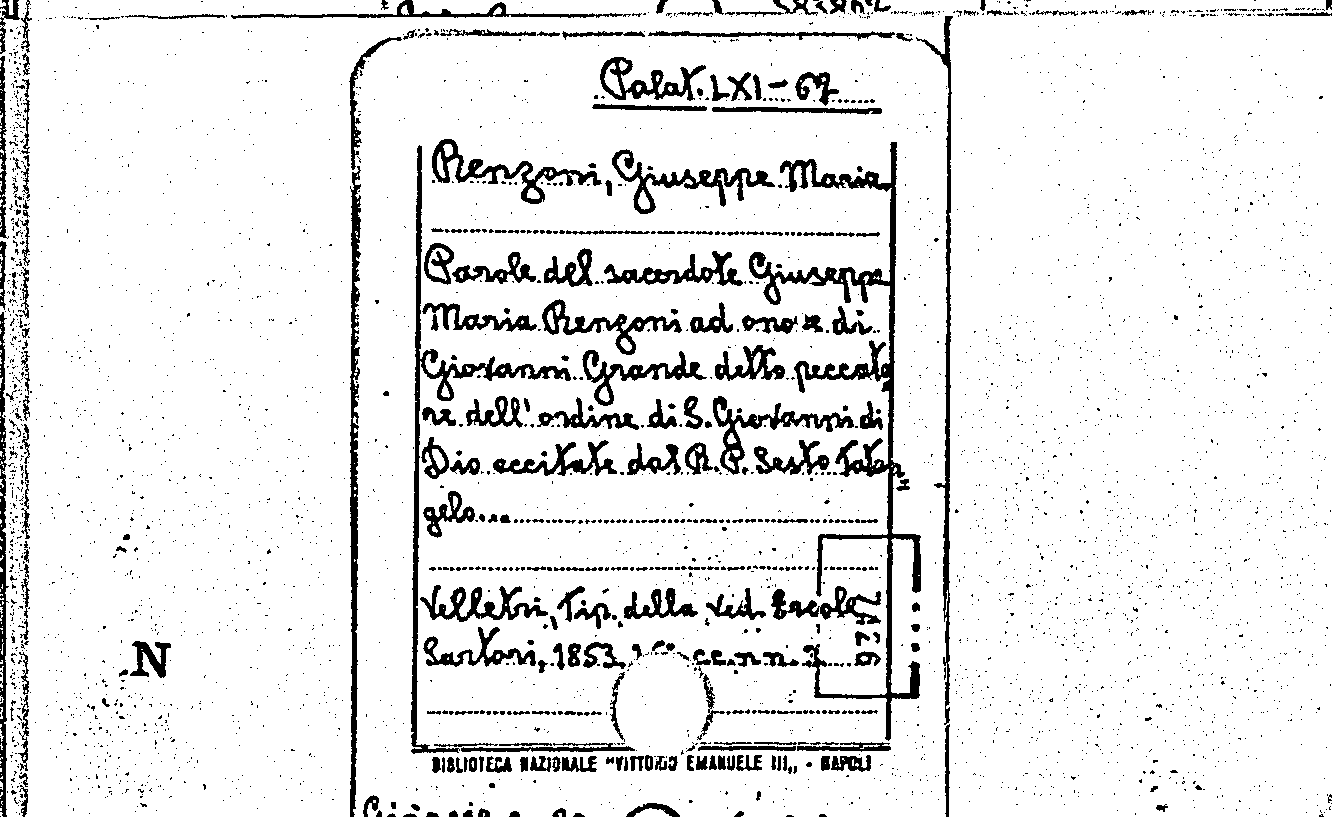 Palat. LXI-67
Renzoni, Giuseppe Maria
Parole del sacerdote Giuseppe
Maria Renzoni ad onore di
Giovanni Grande detto peccato
re dell' ordine di S. Giovanni di
Dio eccitate dal R. P. Sesto
gelo...
Velletri, Tip. della ved. Ercole
Sartori, 1853. cc.n.n.
N
BIBLIOTECA NAZIONALE "VITTORIO EMANUELE III„ - NAPOLI